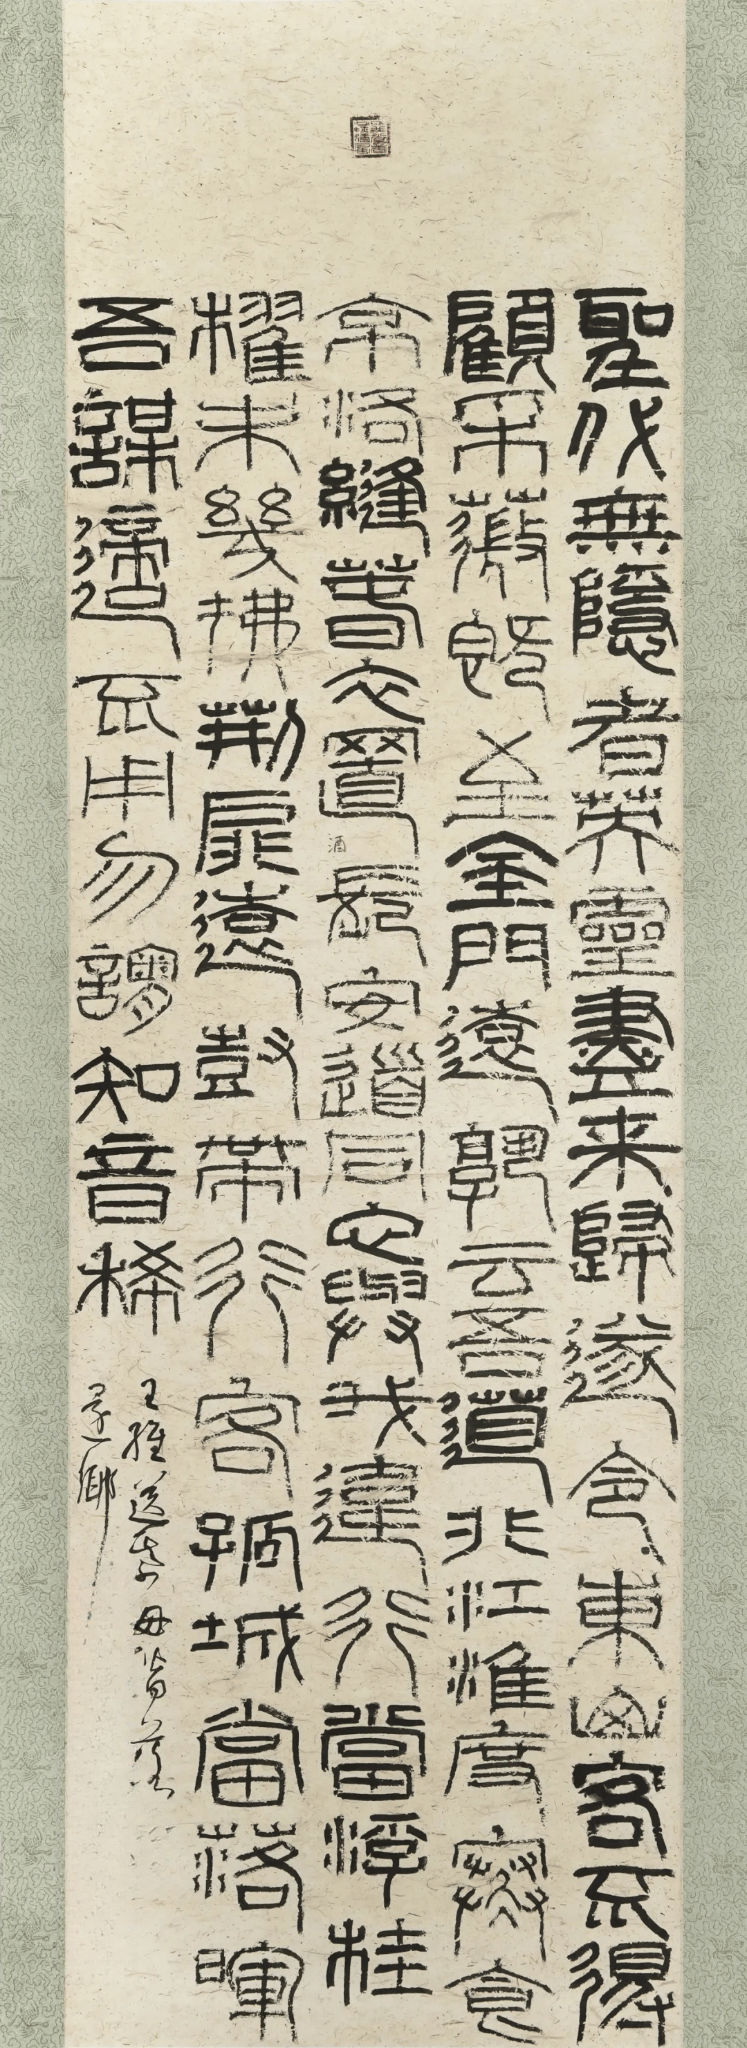 聖代無隱者英靈盡來歸遂令東山客不得
顧采薇既至金門遠孰云吾道非江淮度寒食
京洛縫春衣置酒長安道同心與我違行當浮桂
櫂未幾拂荊扉遠樹帶行客孤城當落暉
吾謀適不用勿謂知音稀
王維送綦毋潛落第
還鄉